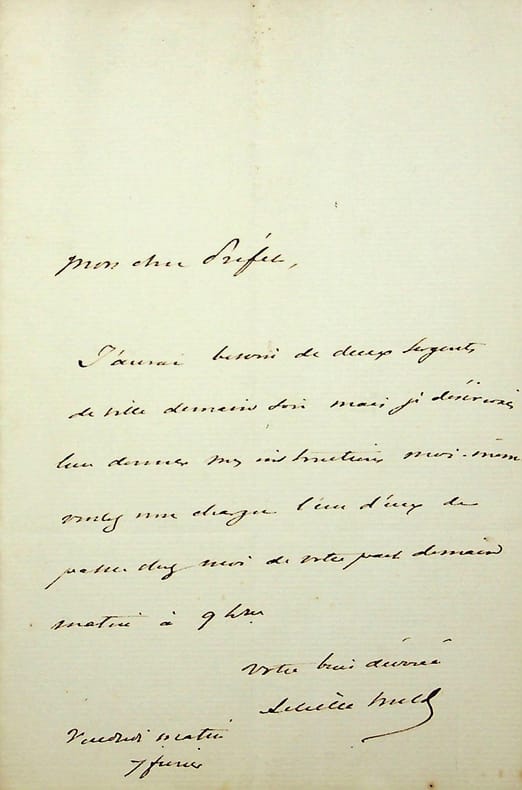 Mon cher Préfet,
J'aurai besoin de deux sergents
de ville demain soir mais je désirerais
leur donner mes instructions moi-même
veuillez charger l'un d'eux de
passer chez moi de votre part demain
matin à 9 hres
Votre bien dévoué
Achille Fould
Vendredi matin
7 février